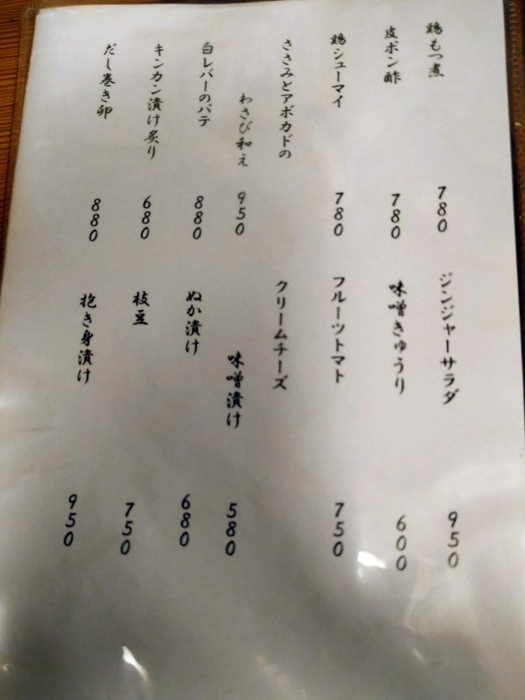 鶏もつ煮
780
皮ポン酢
780
鶏シューマイ
780
ささみとアボカドの
わさび和え
950
白レバーのパテ
880
キンカン漬け炙り
680
だし巻き卵
880
ジンジャーサラダ
950
味噌きゅうり
600
フルーツトマト
750
クリームチーズ
味噌漬け
580
ぬか漬け
680
枝豆
750
抱き身漬け
950